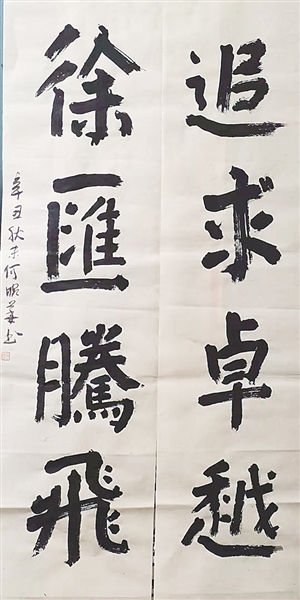 追求卓越
徐匯騰飛
辛丑秋于何明華书